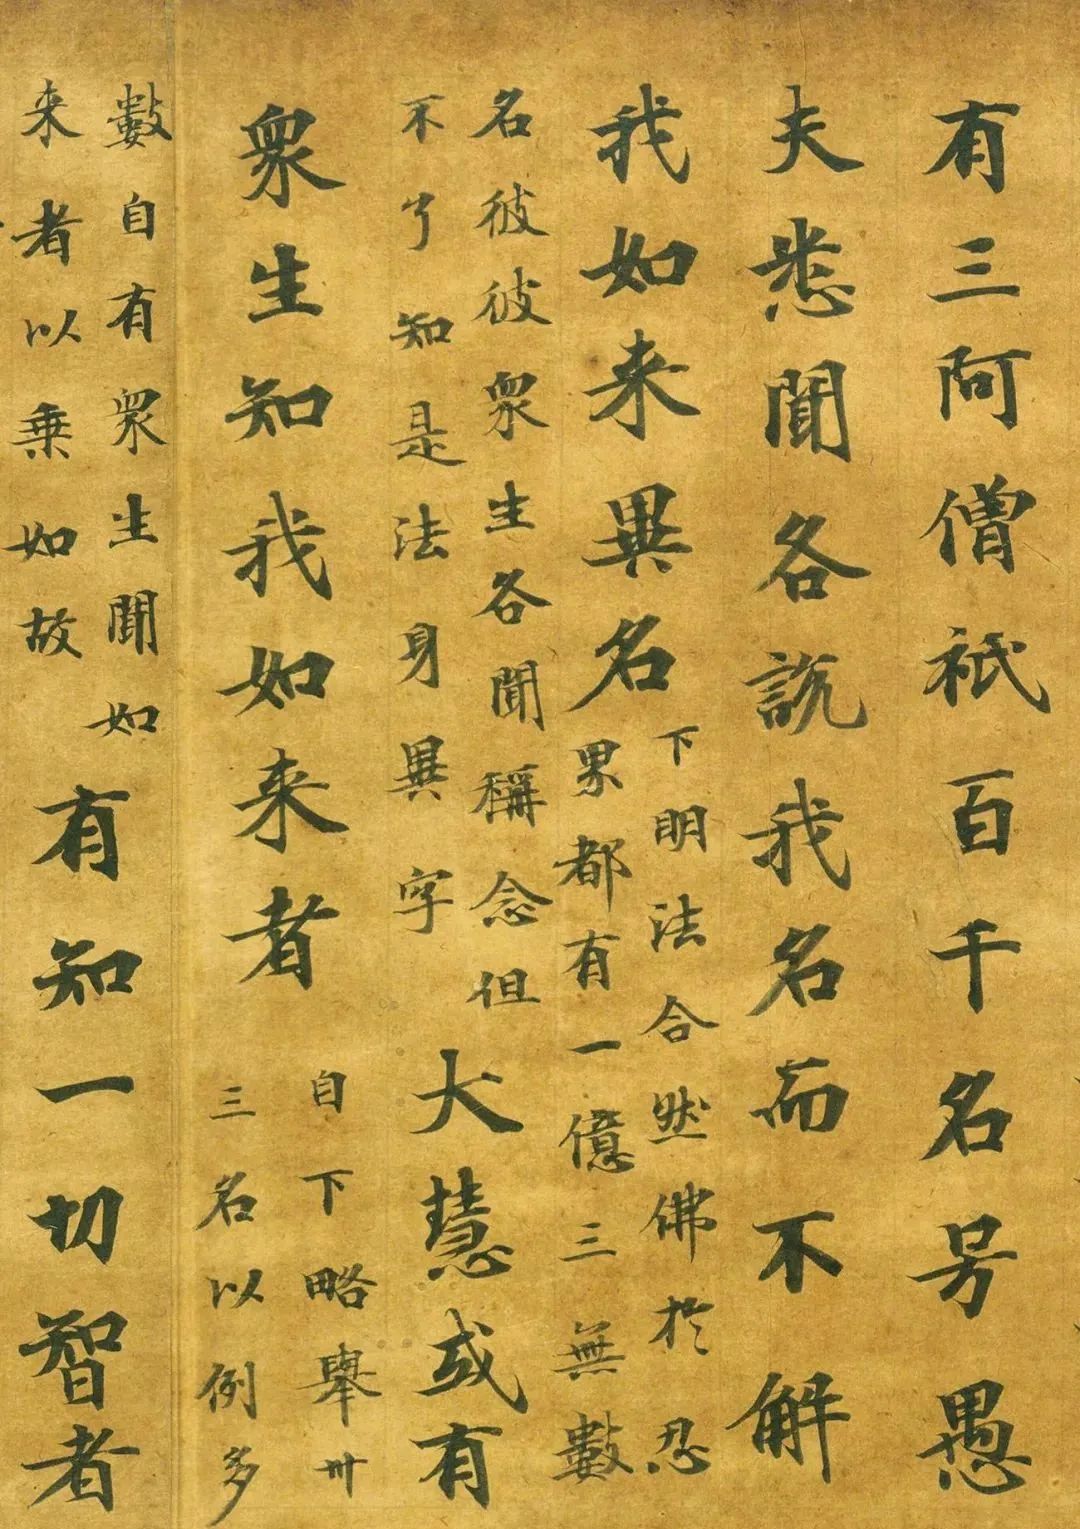 有三阿僧祇百千名号愚
夫悉聞各説我名而不解
我如来異名
下明法合然佛於忍
界都有一億三無數
名彼彼衆生各聞稱念但
不了知是法身異字
大慧或有
衆生知我如来者
自下略舉卅
三名以例多
數自有衆生聞如
来者以乗如故
有知一切智者